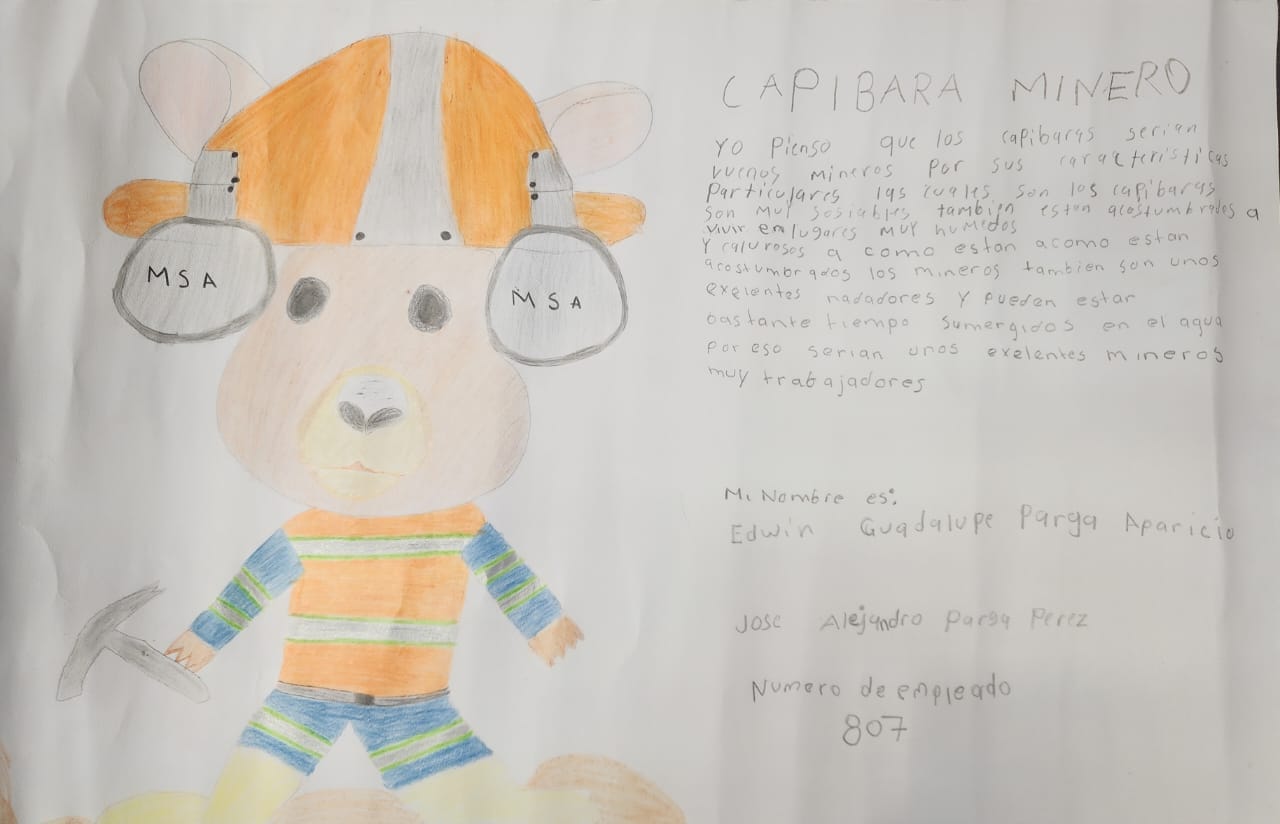 CAPIBARA MINERO
Yo Pienso que los capibaras serian
vuenos mineros por sus caracteristicas
Particulares las cuales son los capibaras
son muy sosiables tambien estan acostumbrados a
vivir en lugares muy humedos
Y calurosos a como estan acomo estan
acostumbrados los mineros tambien son unos
exelentes nadadores Y pueden estar
bastante tiempo sumergidos en el agua
por eso serian unos exelentes mineros
muy trabajadores
MSA
MSA
Mi Nombre es:
Edwin Guadalupe Parga Aparicio
Jose Alejandro parga Perez
Numero de empleado
807